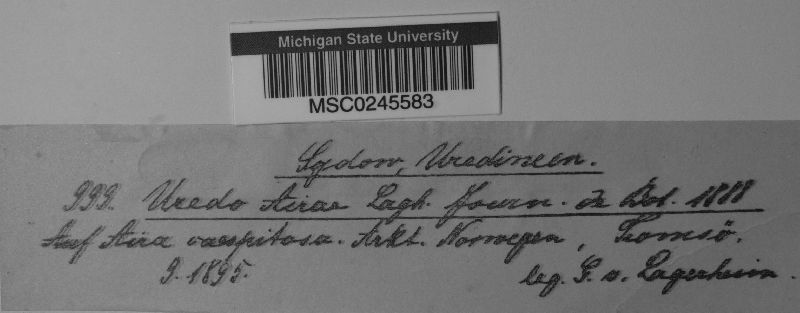 Michigan State University
MSC0245583
Sydow, Uredineen.
999. Uredo Airae Lagh. Journ. de Bot. 1888
Auf Aira caespitosa. Arkt. Norwegen, Tromsö.
9. 1895. leg. G. v. Lagerheim.